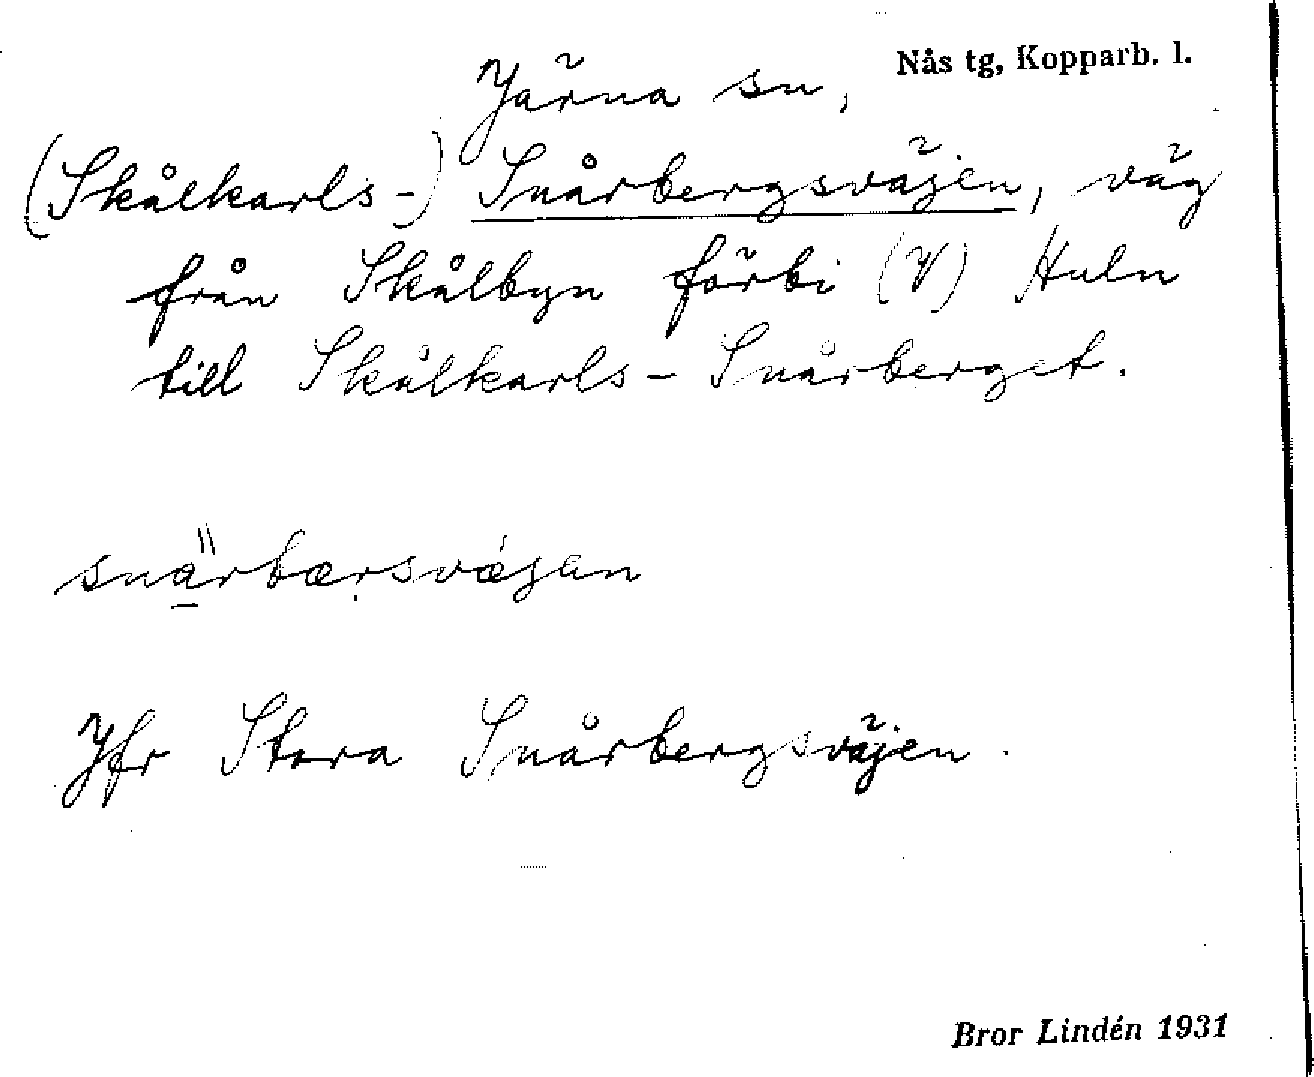 Nås tg, Kopparb. l.
Järna sn,
(Skålkarls-) Snårbergsväjen, väg
från Skålbyn förbi (V) Huln
till Skålkarls-Snårberget.
snä̱rbærsvǽjan
Jfr Stora Snårbergsväjen.
Bror Lindén 1931